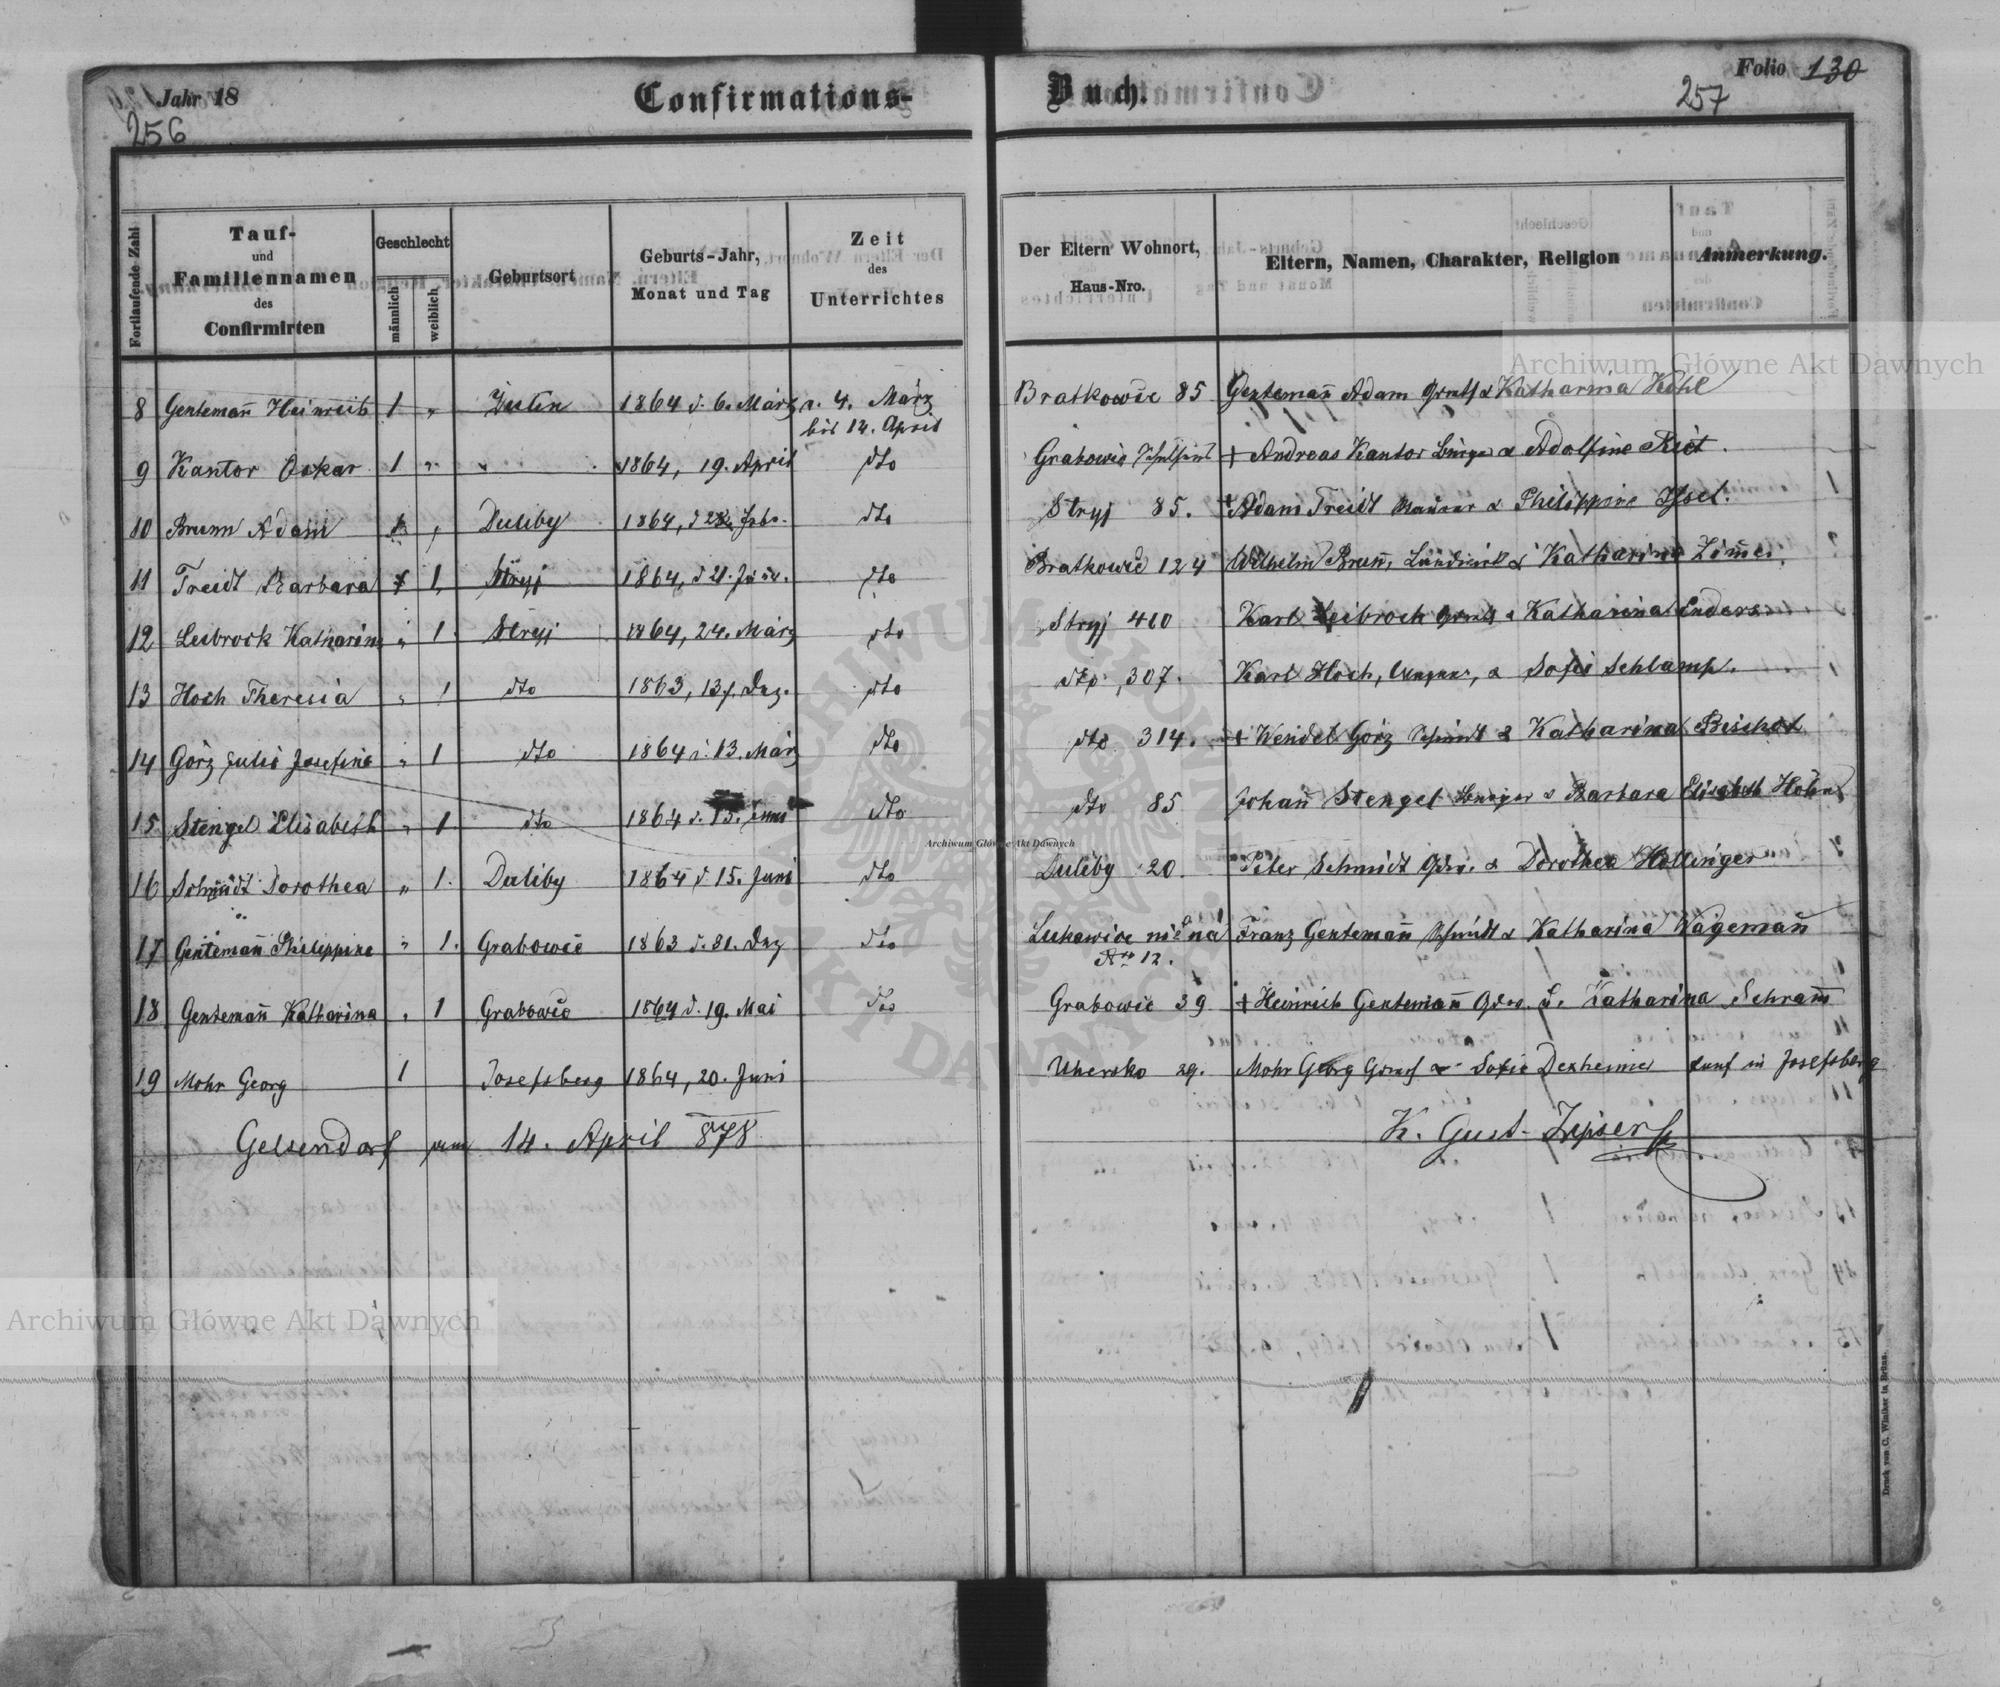 Jahr 18
256
Confirmations-
Buch.
Folio 130
257
Fortlaufende Zahl
Tauf-
und
Familiennamen
des
Confirmirten
Geschlecht
männlich
weiblich
Geburtsort
Geburts-Jahr,
Monat und Tag
Zeit
des
Unterrichtes
Der Eltern Wohnort,
Haus-Nro.
Eltern, Namen, Charakter, Religion
Anmerkung.
8 Gentemañ Heinrich 1 „ 1864 d. 6. März v. 4. März Bratkowic 85 Gentemañ Adam & Katharina Kohl
bis 14. April
9 Kantor Oskar 1 „ „ 1864, 19. April dto Grabowic + Andreas Kantor & Adolfine
10 Brunn Adam „ Duliby 1864, d dto Stryj 85. + Adam Treidt & Philippine
11 Treidt Barbara 1 Stryj 1864, d 21. dto Bratkowic 124 Wilhelm Bruñ, & Katharina
12 Leibrock Katharina „ 1 Stryj 1864, 24. März dto Stryj 410 Karl Leibrock & Katharina Enders
13 Hoch Theresia „ 1 dto 1863, 13. Dez. dto dto 307. Karl Hoch, & Sofie Schlamp.
14 Görz Julie Josefine „ 1 dto 1864 d. 13. März dto dto 314. + Wendel Görz & Katharina Bischof
15 Stengel Elisabeth „ 1 dto 1864 d. 15. Juni dto dto 85 Johañ Stengel & Barbara Elisabeth
16 Schmidt Dorothea „ 1. Duliby 1864 d 15. Juni dto Duliby 20. Peter Schmidt & Dorothea Hollinger
17 Gentemañ Philippine „ 1. Grabowic 1863 d. 31. Dez dto Lukawice Franz Gentemañ & Katharina Wagemañ
Nro 12.
18 Gentemañ Katharina „ 1 Grabowic 1864 d. 19. Mai dto Grabowic 39 + Heinrich Gentemañ & Katharina Schram̃
19 Mohr Georg 1 Josefsberg 1864, 20. Juni Uhersko 29. Mohr Georg & Sofie Dexheimer in Josefsberg
Gelsendorf am 14. April 878
K. Gust. Zipser
Druck von C. Winiker in Brünn.
Archiwum Główne Akt Dawnych
Archiwum Główne Akt Dawnych
Archiwum Główne Akt Dawnych
ARCHIWUM GŁÓWNE AKT DAWNYCH